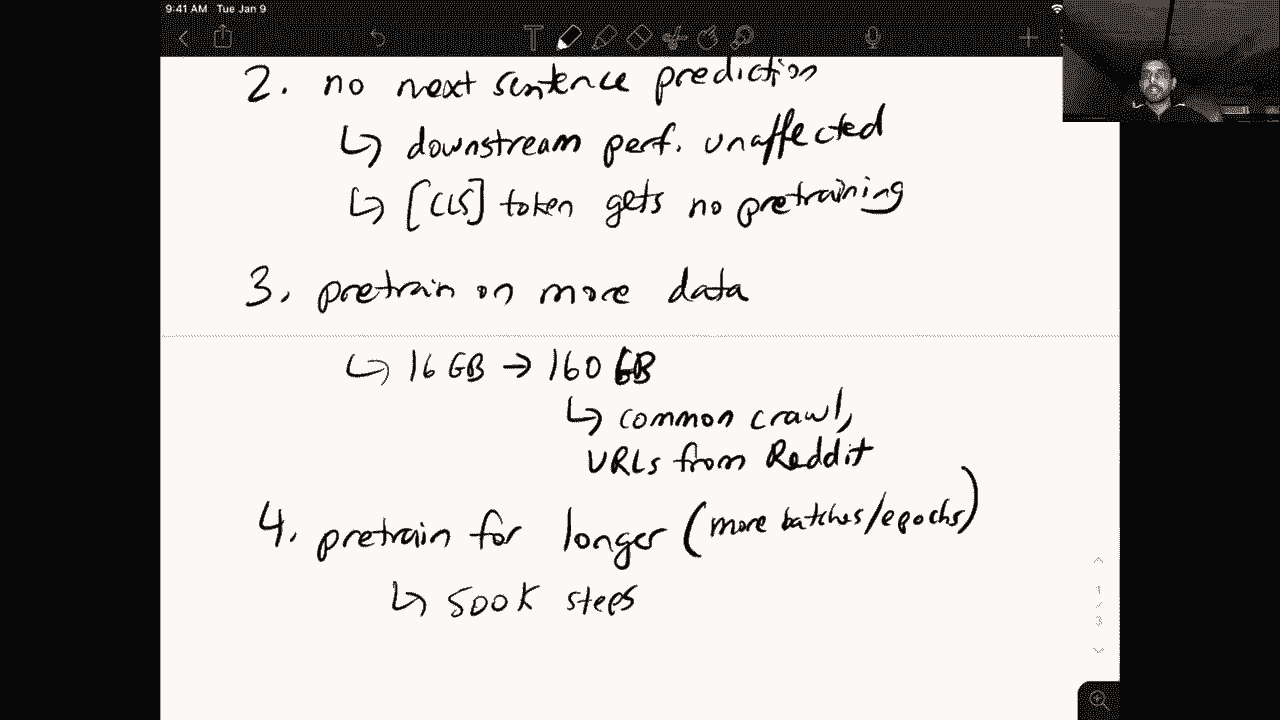 9:41 AM Tue Jan 9
2. no next sentence prediction
↳ downstream perf. unaffected
↳ [CLS] token gets no pretraining
3. pretrain on more data
↳ 16 GB → 160 GB
↳ common crawl,
URLs from Reddit
4. pretrain for longer (more batches/epochs)
↳ 500K steps
1
/
3